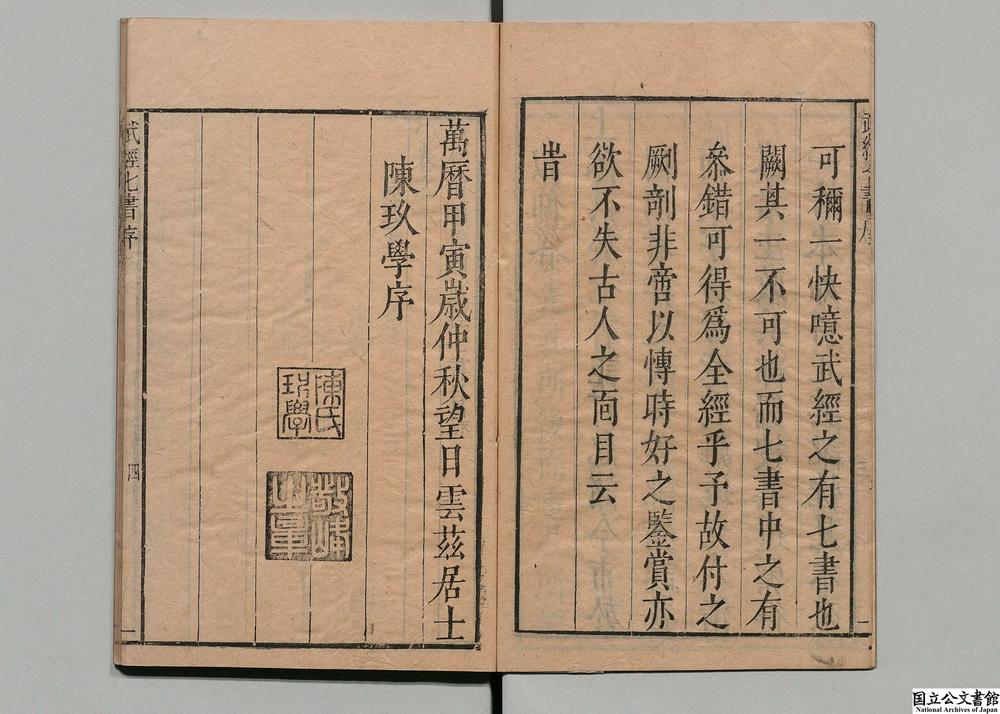 武經七書序
可稱一快噫武經之有七書也
闕其一不可也而七書中之有
叅錯可得爲全經乎予故付之
劂剞非啻以慱時好之鑒賞亦
欲不失古人之面目云
旹
三
萬曆甲寅歲仲秋望日雲茲居士
陳玖學序
陳氏
玖學
武經七書序
四
国立公文書館
National Archives of Japan